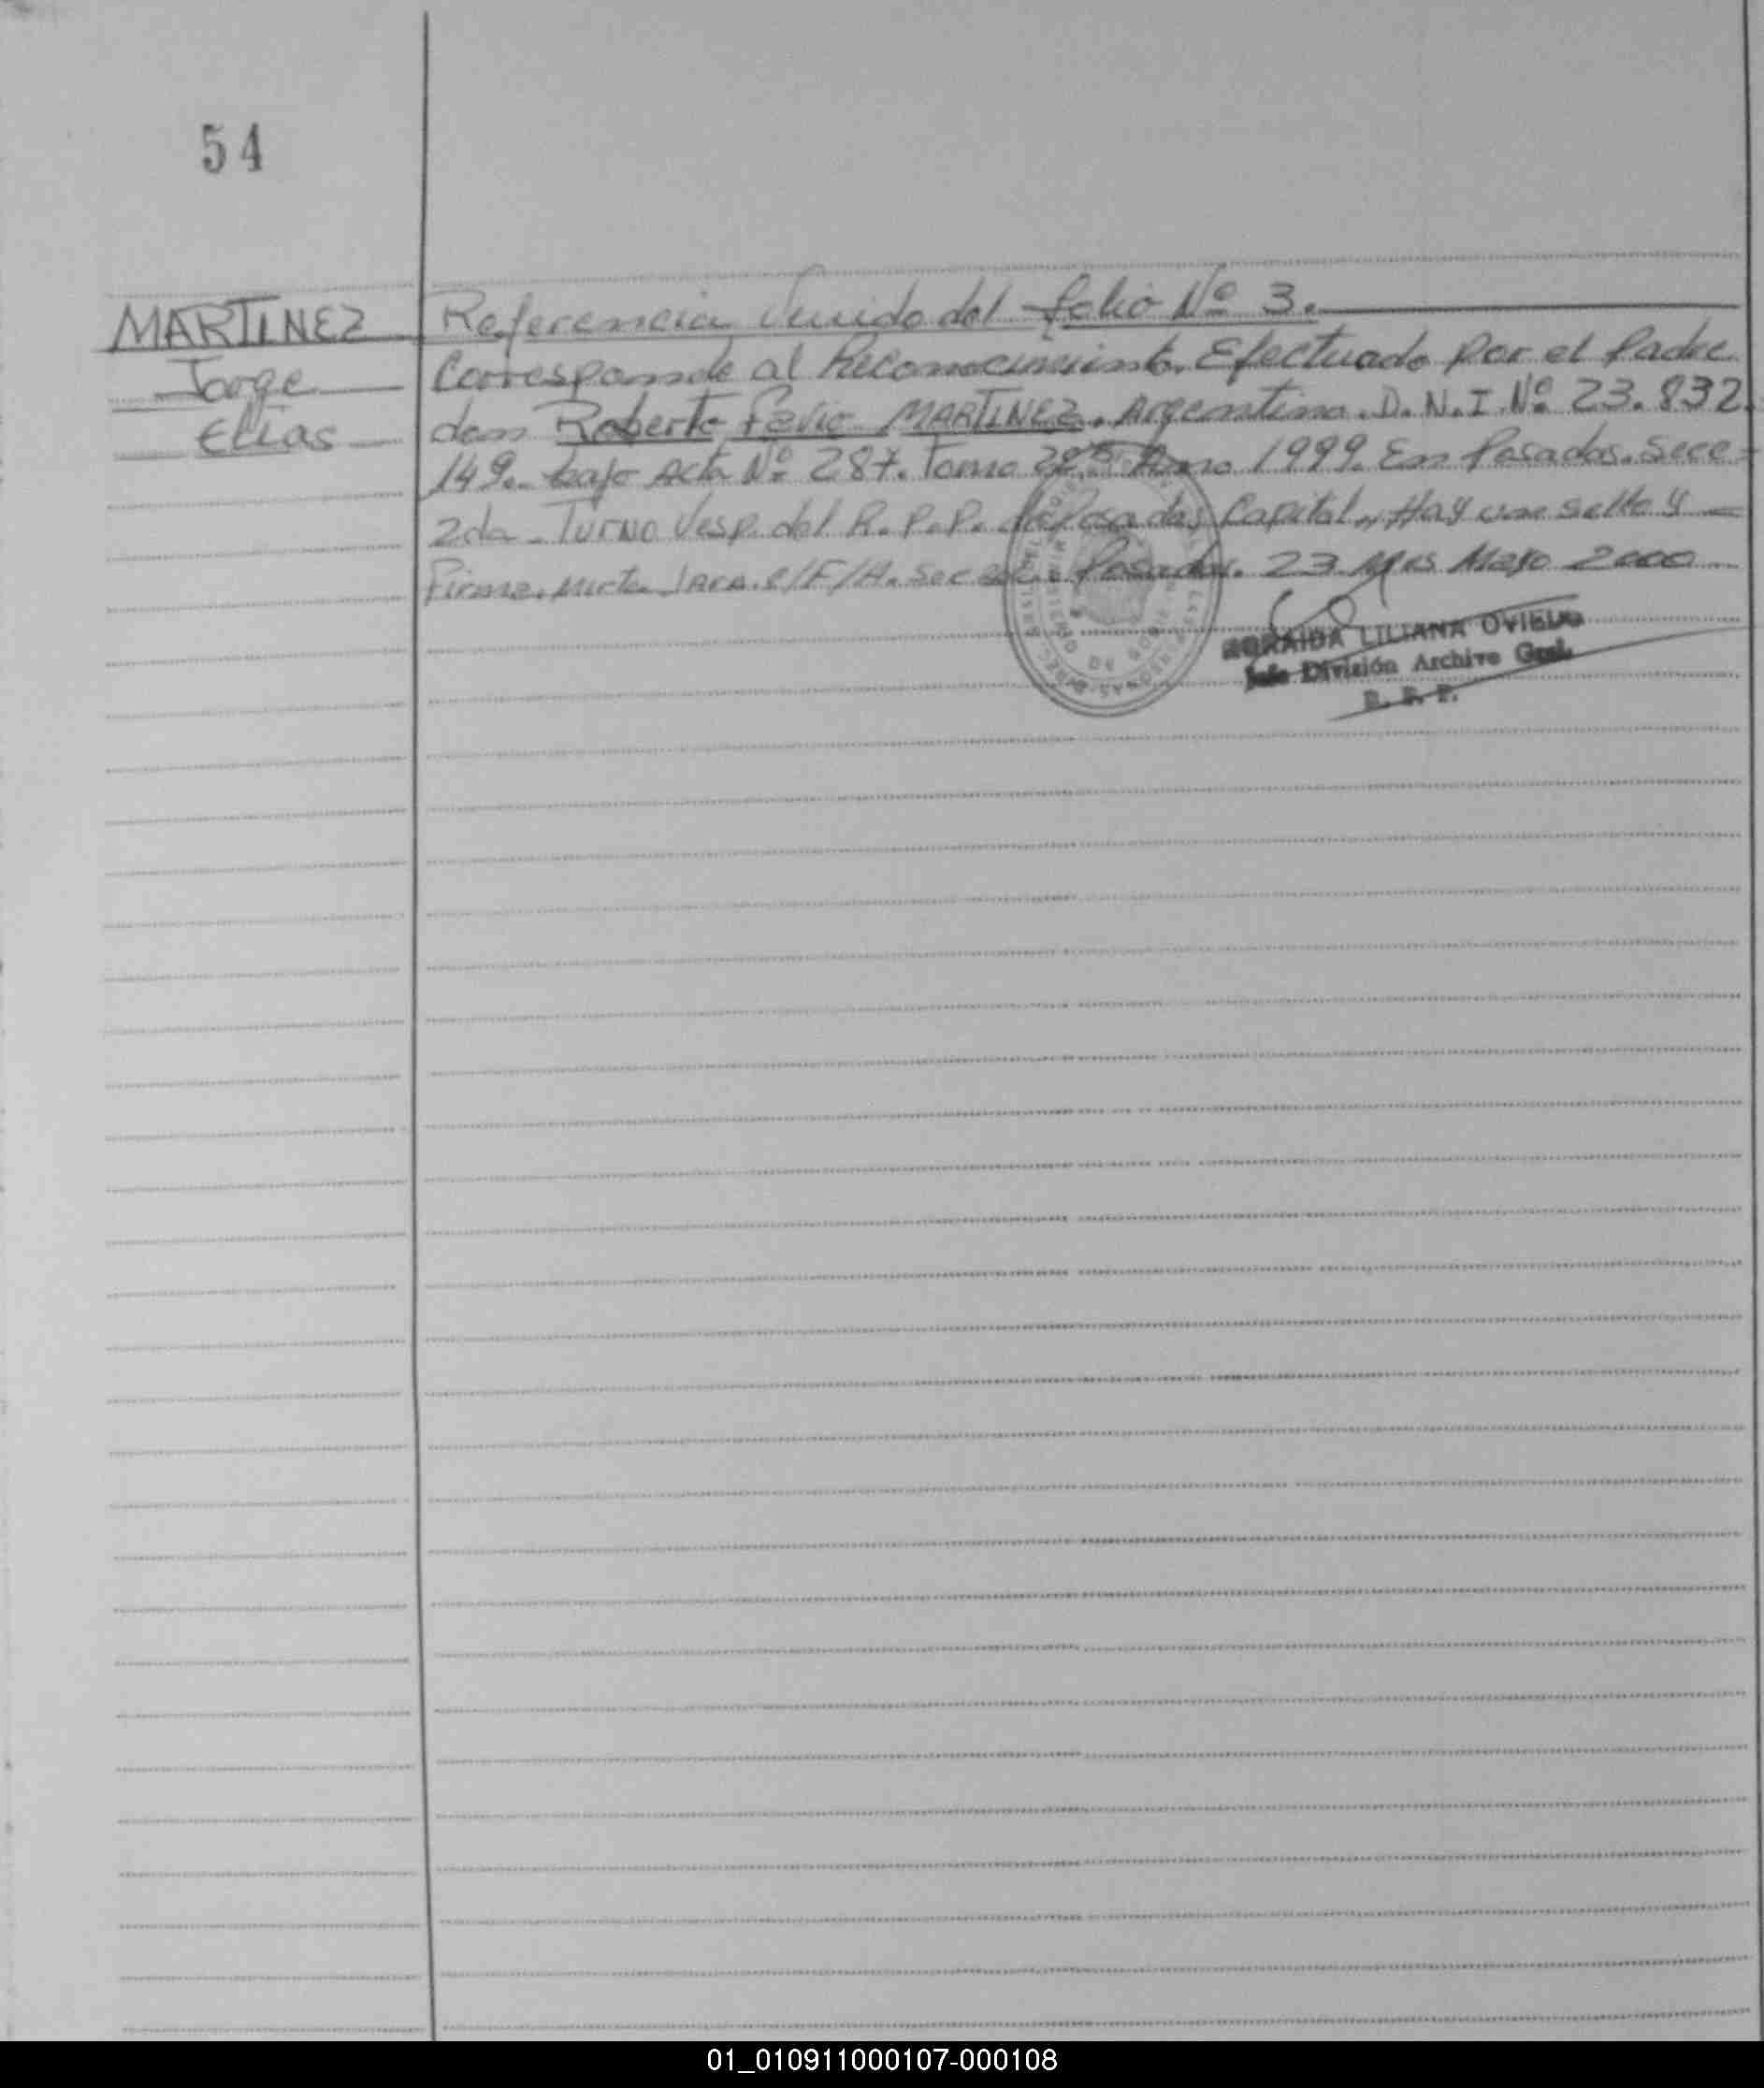 54
MARTINEZ
Jorge
Elias
Referencia Venido del folio Nº 3.
Corresponde al Reconocimiento. Efectuado por el Padre
don Roberto Favio MARTINEZ. Argentino. D.N.I. Nº 23.832.
149. bajo Acta Nº 287. Tomo Año 1999. En Posadas. Secc=
2da - Turno Vesp. del R.P.P. de Posadas Capital. Hay un sello y
Firma. Mirta Jara. Posadas. 23 Mes Mayo 2000
ZORAIDA LILIANA OVIEDO
Jefe División Archivo Gral.
R. P. P.
01_010911000107-000108